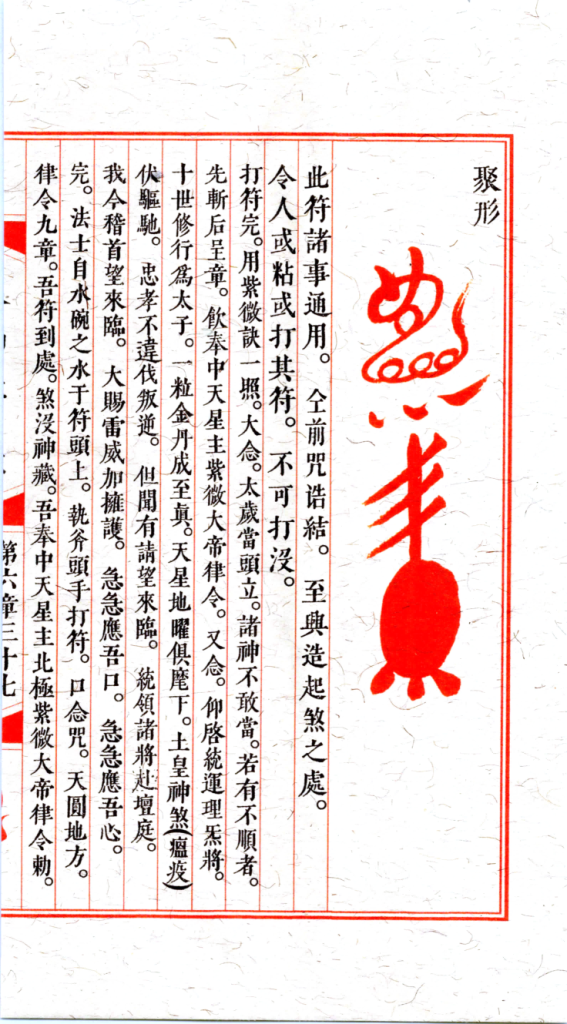 聚形
此符諸事通用。仝前咒诰結。至與造起煞之處。
令人或粘或打其符。不可打沒。
打符完。用紫微訣一照。大念。太歲當頭立。諸神不敢當。若有不順者。
先斬后呈章。飲奉中天星主紫微大帝律令。又念。仰啓統運理炁將。
十世修行爲太子。一粒金丹成至真。天星地曜俱麾下。土皇神煞(瘟疫)
伏驅馳。忠孝不違伐叛逆。但聞有請望來臨。統領諸將赴壇庭。
我今稽首望來臨。大賜雷威加擁護。急急應吾口。急急應吾心。
完。法士自水碗之水于符頭上。執斧頭手打符。口念咒。天圓地方。
律令九章。吾符到處。煞沒神藏。吾奉中天星主北極紫微大帝律令勅。
第六章三十七